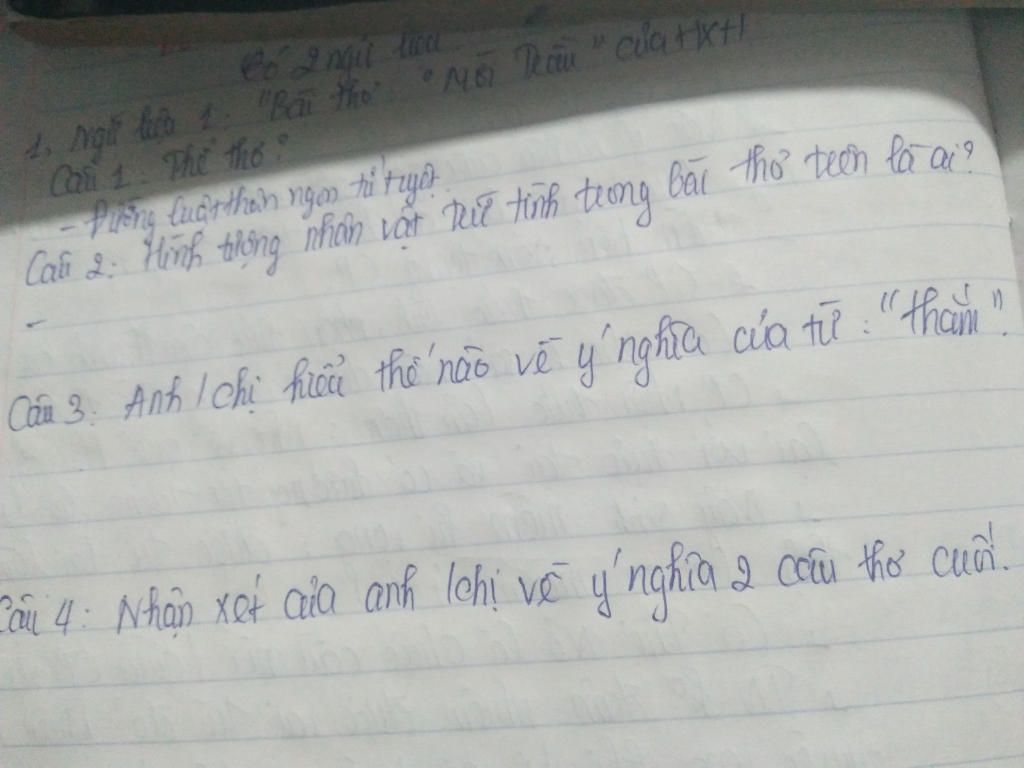 Có 2 ngữ liệu
1, Ngữ liệu 1: "Bài thơ: "Mời Trầu" của HXH
Câu 1: Thể thơ?
- Đường luật thất ngôn tứ tuyệt.
Câu 2: Hình tượng nhân vật trữ tình trong bài thơ trên là ai?
-
Câu 3: Anh/chị hiểu thế nào về ý nghĩa của từ: "thắm".
Câu 4: Nhận xét của anh/chị về ý nghĩa 2 câu thơ cuối.